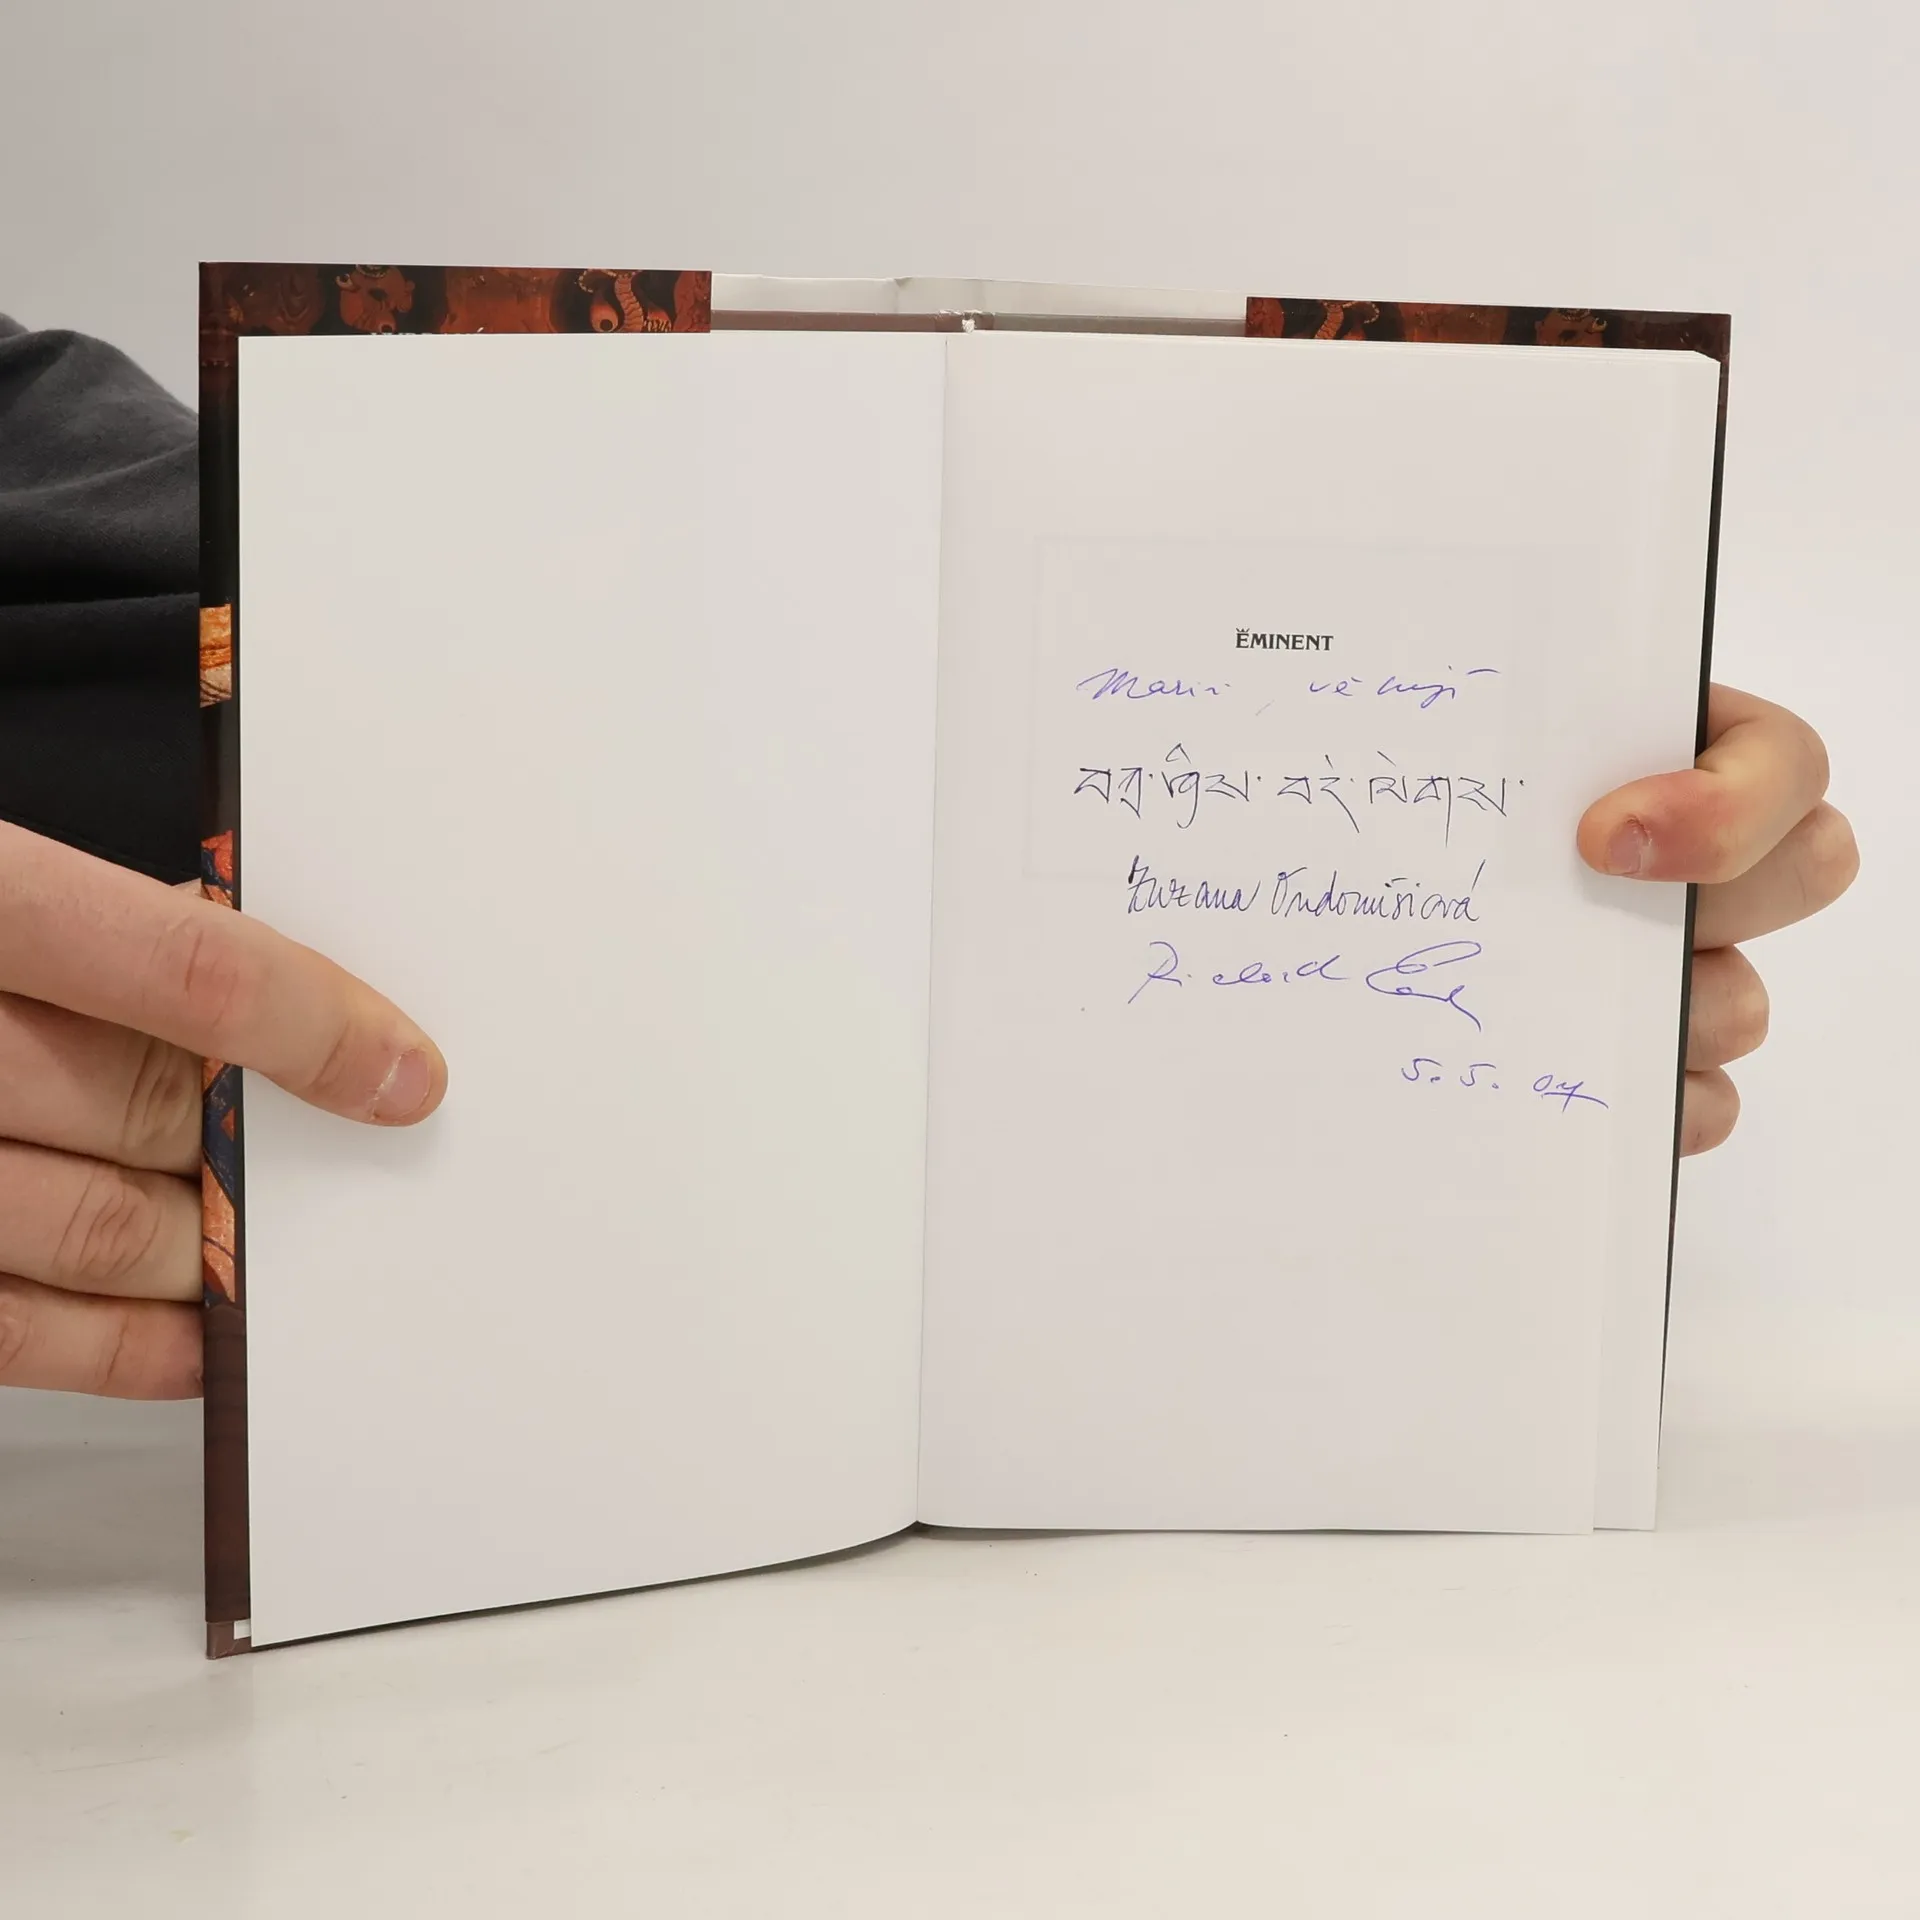 EMINENT
Marii, věnují
བཀྲ་ཤིས་ བདེ་ལེགས་
Zuzana Ondomišiová
Richard
5. 5. 04